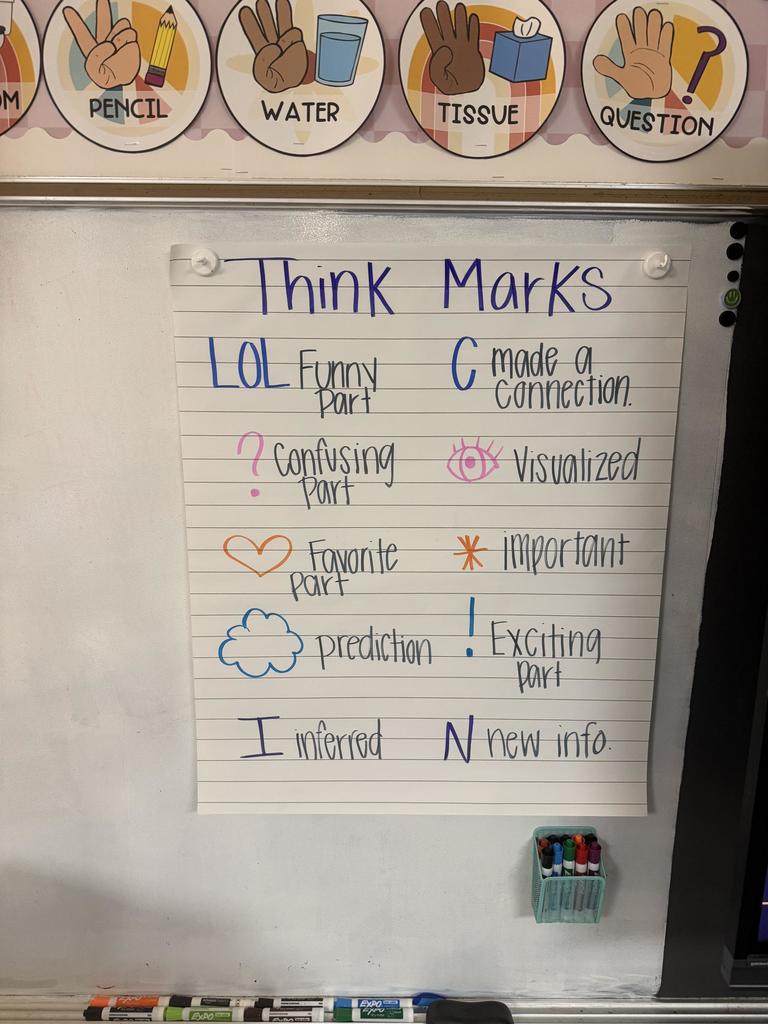 OM
PENCIL
WATER
TISSUE
QUESTION
Think Marks
LOL Funny
Part
C made a
connection.
? Confusing
Part
Visualized
Favorite
part
* important
prediction
! Exciting
part
I inferred
N new info.
EXPO
EXPO
EXPO
EXPO